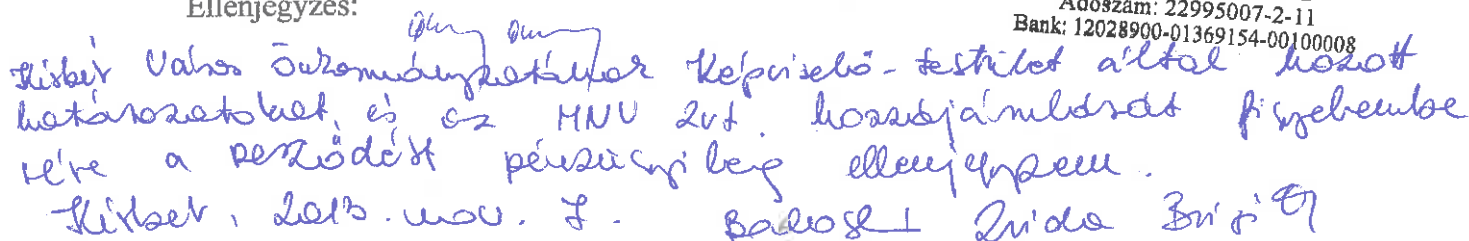 Ellenjegyzés:
Adószám: 22995007-2-11
Bank: 12028900-01369154-00100008
Kisbér Város Önkormányzatának Képviselő-testület által hozott
határozatokat, és az MNV Zrt. hozzájárulását figyelembe
véve a szerződést pénzügyileg ellenjegyzem.
Kisbér, 2013. nov. 7.